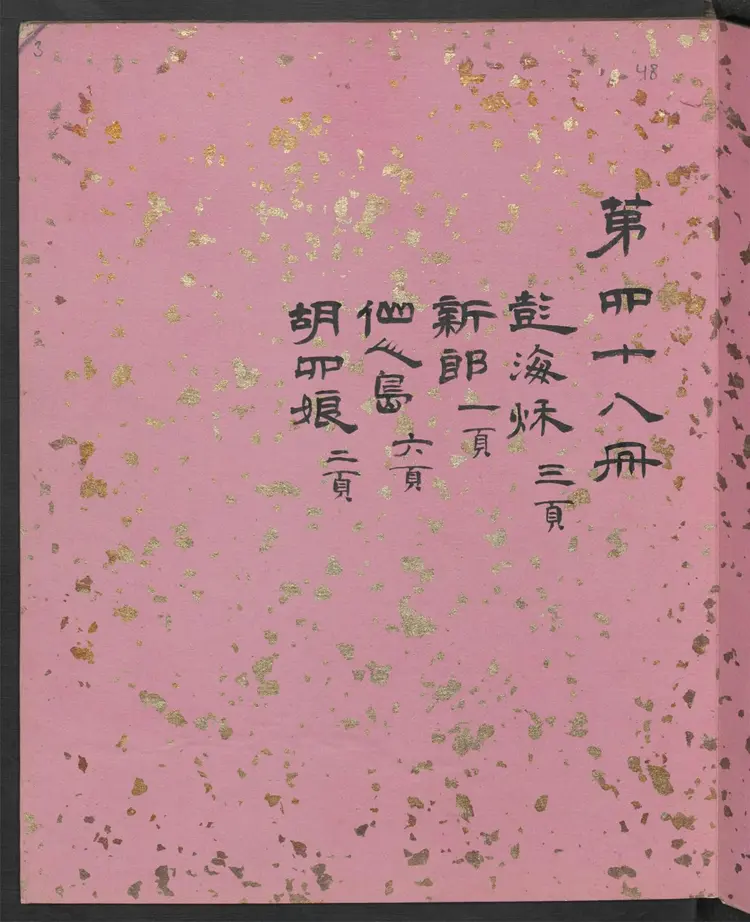 第四十八冊
彭海秌 三頁
新郎 一頁
仙人島 六頁
胡四娘 二頁
3
48